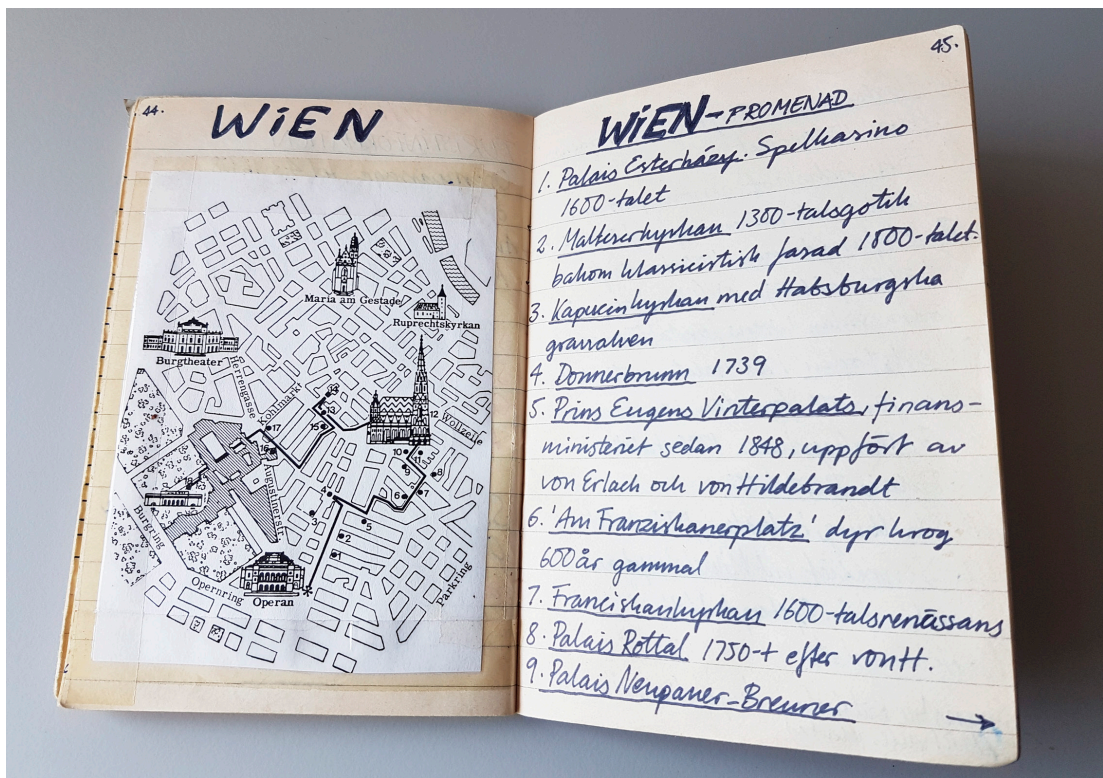 44.
WiEN
Maria am Gestade
Ruprechtskyrkan
Burgtheater
Herrengasse
Kohlmarkt
14
13
15
12
Wollzeile
17
16
10
11
9
8
18
Augustinerstr.
4
6
7
3
5
2
1
Burgring
Opernring
Operan
Parkring
45.
WiEN-PROMENAD
1. Palais Esterházy. Spelkasino
1600-talet
2. Malteserkyrkan 1300-talsgotik
bakom klassicistisk fasad 1800-talet.
3. Kapucinkyrkan med Habsburgska
gravvalven
4. Donnerbrunn 1739
5. Prins Eugens Vinterpalats, finans-
ministeriet sedan 1848, uppfört av
von Erlach och von Hildebrandt
6. 'Am Franziskanerplatz' dyr krog
600 år gammal
7. Franciskankyrkan 1600-talsrenässans
8. Palais Rottal 1750-t efter von H.
9. Palais Neupauer-Breuner
→